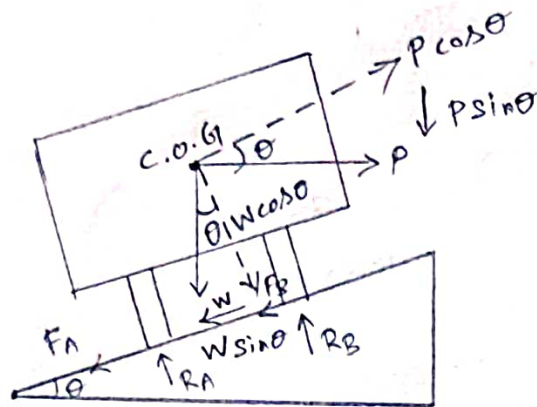 P cosθ
P sinθ
C.O.G
θ
P
θ W cosθ
W
F_B
F_A
W sinθ
R_B
R_A
θ